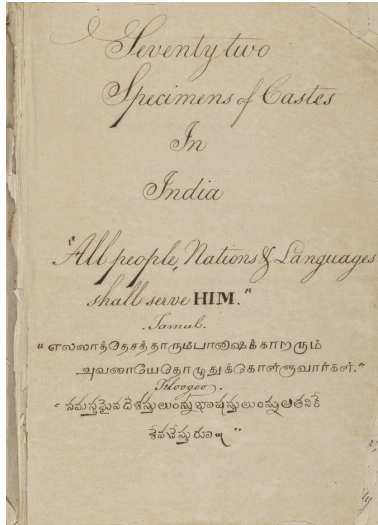 Seventy two
Specimens of Castes
In
India
"All people, Nations & Languages
shall serve HIM."
Tamul.
"எல்லாத்தேசத்தாரும்பாஷைக்காரரும்
அவனையேதொழுதுக்கொள்ளுவார்கள்."
Teloogoo.
"సమస్తమైవదేశస్తులుంన్నుభాషస్తులుంన్నుఅతనికే
శేవచేస్తురు"